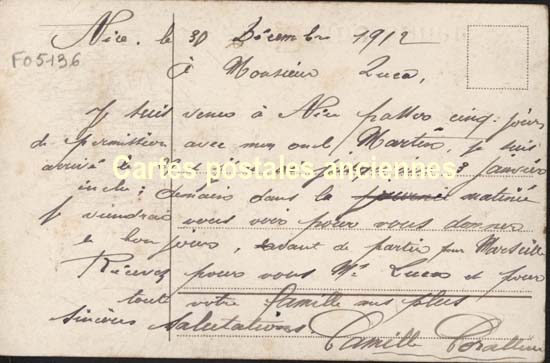 Nice. le 30 Décembre 1912
F05136
à Monsieur Luca,
Je suis venus à Nice passer cinq jours
de permission avec mon oncle Martin, je suis
arrivé 3 janvier
Cartes postales anciennes
inclu; demains dans la journée matinée
je viendrai vous voir pour vous donner
le bon jours, avant de partir pour Marseille
Recevez pour vous Mr Luca et pour
tout votre famille mes plus
sincères salutations
Camille